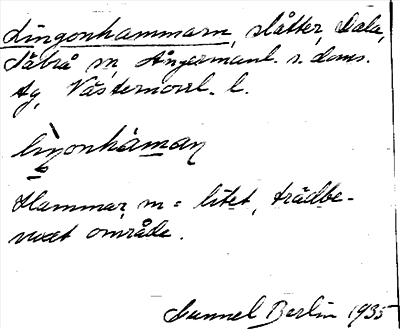 Lingonhammarn, slåtter, Dala,
Säbrå sn, Ångermanl. s. doms.
tg, Västernorrl. l.
liŋonhàman
Hammar, m = litet, trädbe-
vuxet område.
Gunnel Berlin 1935